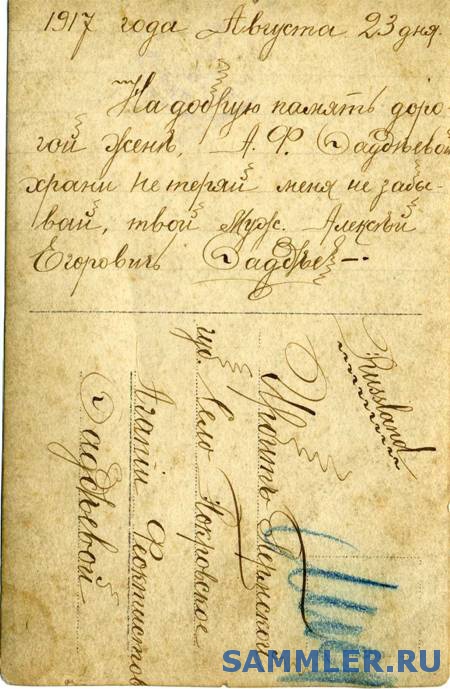 1917 года Августа 23 дня.
На добрую память доро-
гой Женѣ, А. Ф. Гаддѣевой
храни не теряй меня не забы-
вай, твой Муж. Алексѣй
Егоровичъ
Russland
Пермской
губ. Село Покровское
Агапіи Феоктистов
SAMMLER.RU